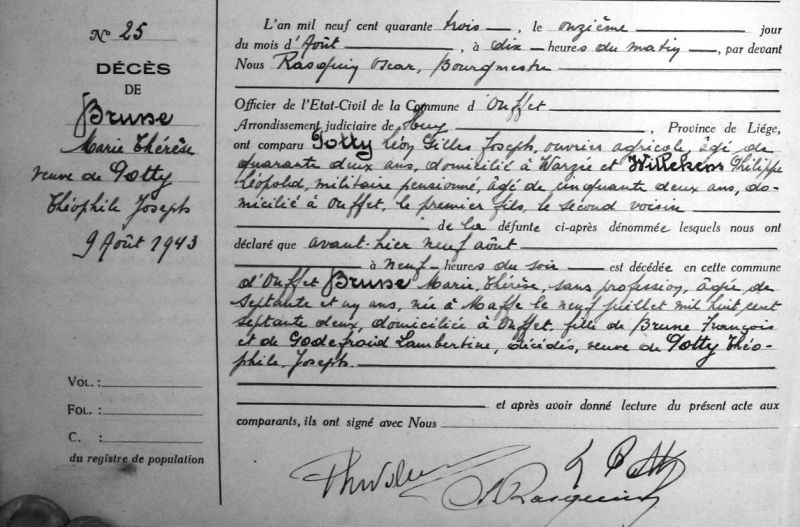 N° 25
DÉCÈS
DE
Brune
Marie Thérèse
veuve de Potty
Théophile Joseph
9 Août 1943
VOL.:
FOL.:
C. :
du registre de population
L'an mil neuf cent quarante trois, le onzième jour
du mois d'Août, à dix heures du matin, par devant
Nous Rasquin Oscar, Bourgmestre
Officier de l'Etat-Civil de la Commune d'Ouffet
Arrondissement judiciaire de Huy, Province de Liége,
ont comparu Potty Léon Gilles Joseph, ouvrier agricole, âgé de
quarante deux ans, domicilié à Warzée et Willekens Philippe
Léopold, militaire pensionné, âgé de cinquante deux ans, do-
micilié à Ouffet, le premier fils, le second voisin
de la défunte ci-après dénommée lesquels nous ont
déclaré que avant-hier neuf août
à neuf heures du soir est décédée en cette commune
d'Ouffet Brune Marie Thérèse, sans profession, âgée de
septante et un ans, née à Maffe le neuf juillet mil huit cent
septante deux, domiciliée à Ouffet, fille de Brune François
et de Godefroid Lambertine, décédés, veuve de Potty Théo-
phile Joseph.
et après avoir donné lecture du présent acte aux
comparants, ils ont signé avec Nous
L Potty
O Rasquin